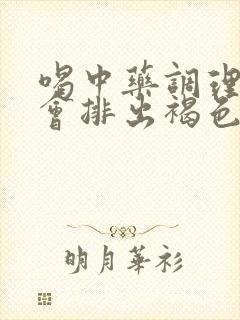 喝中药調理
會排出褐色
明月華衫